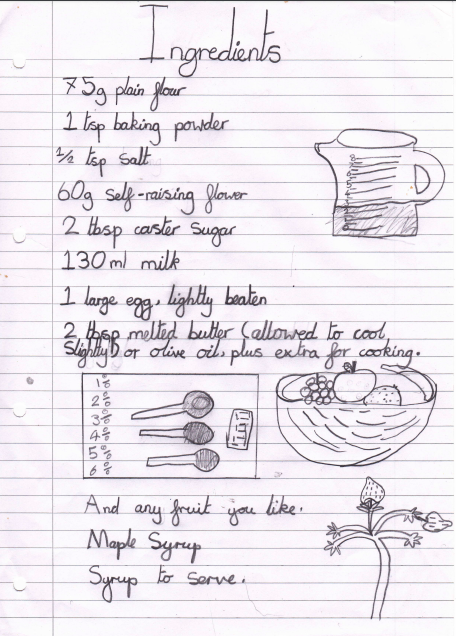 Ingredients
75g plain flour
1 tsp baking powder
1/2 tsp salt
60g self-raising flower
2 tbsp caster sugar
130ml milk
1 large egg, lightly beaten
2 tbsp melted butter (allowed to cool
slightly) or olive oil, plus extra for cooking.
1%
2%
3%
4%
5%
6%
And any fruit you like.
Maple Syrup
Syrup to serve.